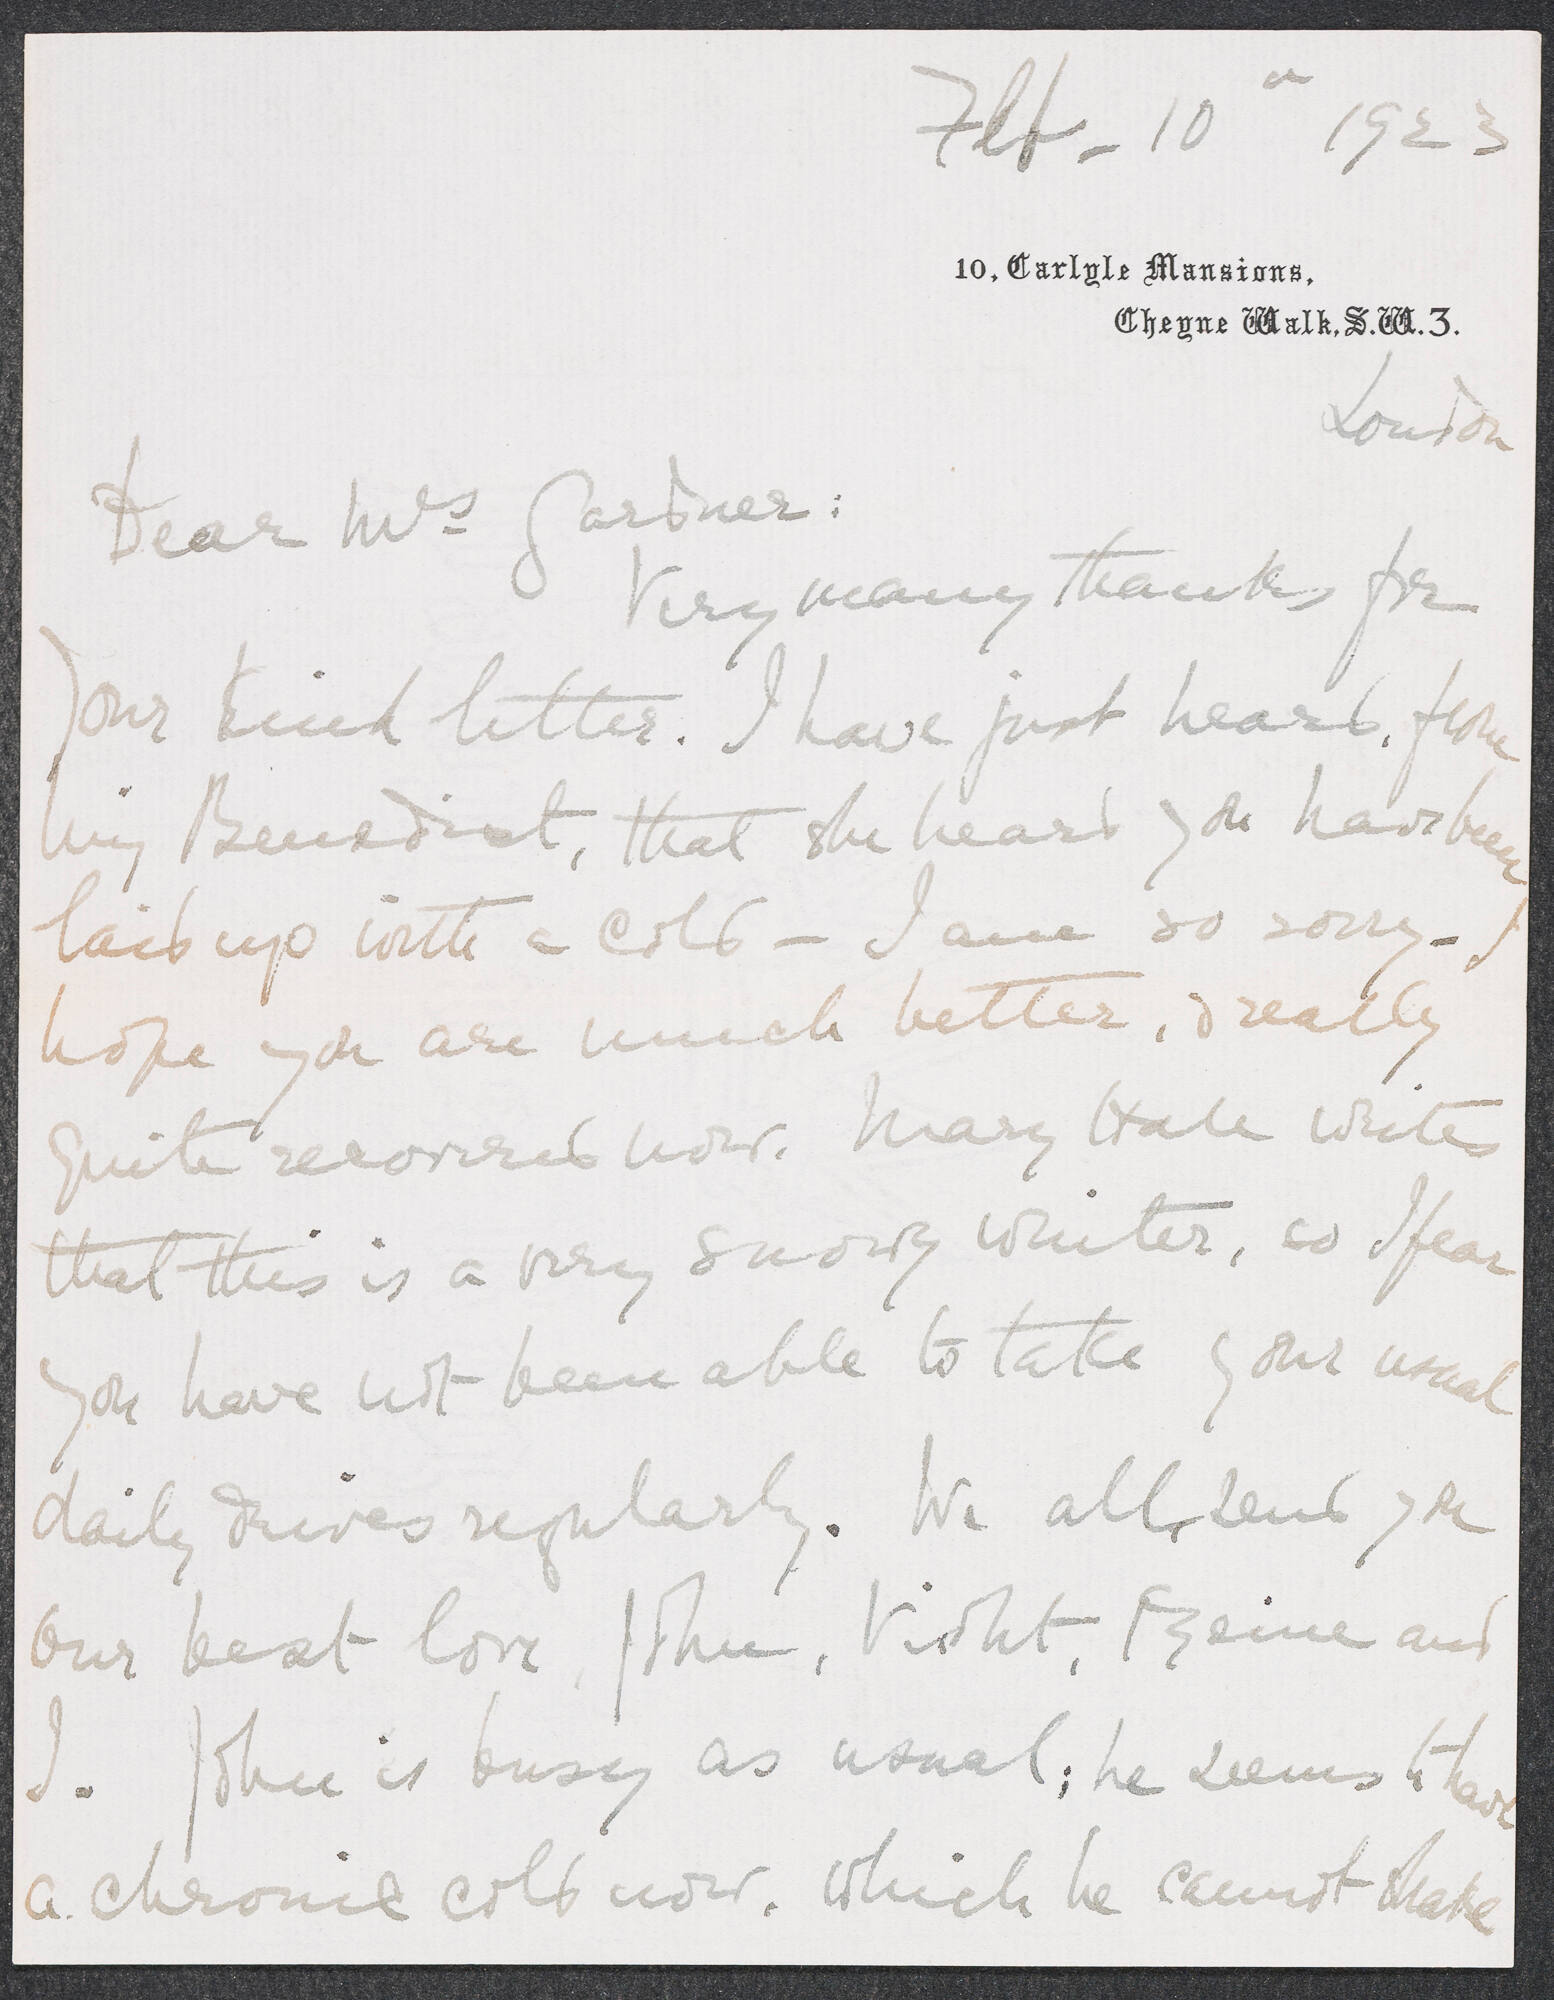 Feb - 10th 1923
10, Carlyle Mansions,
Cheyne Walk, S.W.3.
London
Dear Mrs Gardner:
Very many thanks for
your kind letter. I have just heard, from
my Benedict, that she heard you have been
laid up with a cold - I am so sorry - I
hope you are much better, & really
quite recovered now. Mary Hale writes
that this is a very snowy winter, so I fear
you have not been able to take your usual
daily drives regularly. We all send you
our best love, John, Violet, and
I. John is busy as usual; he seems to have
a chronic cold now, which he cannot shake